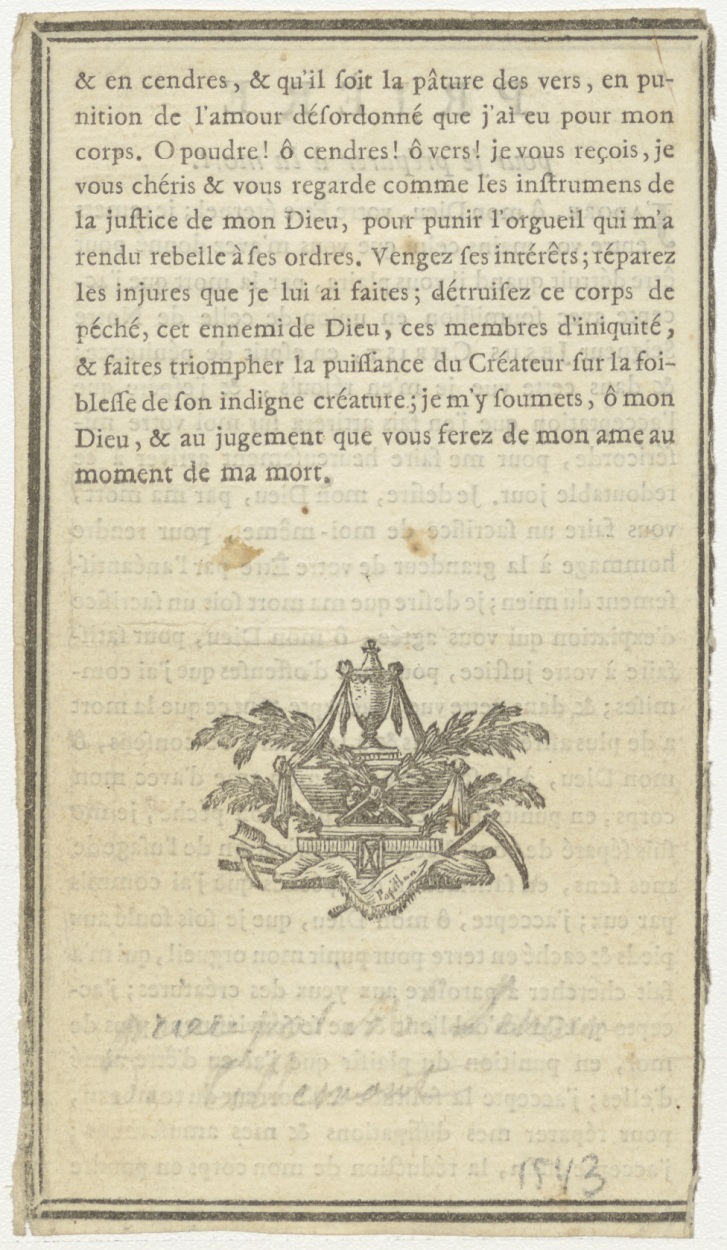 & en cendres, & qu'il ſoit la pâture des vers, en pu-
nition de l'amour déſordonné que j'ai eu pour mon
corps. O poudre! ô cendres! ô vers! je vous reçois, je
vous chéris & vous regarde comme les inſtrumens de
la juſtice de mon Dieu, pour punir l'orgueil qui m'a
rendu rebelle à ſes ordres. Vengez ſes intérêts; réparez
les injures que je lui ai faites; détruiſez ce corps de
péché, cet ennemi de Dieu, ces membres d'iniquité,
& faites triompher la puiſſance du Créateur ſur la foi-
bleſſe de ſon indigne créature; je m'y ſoumets, ô mon
Dieu, & au jugement que vous ferez de mon ame au
moment de ma mort.
Papillon
1543